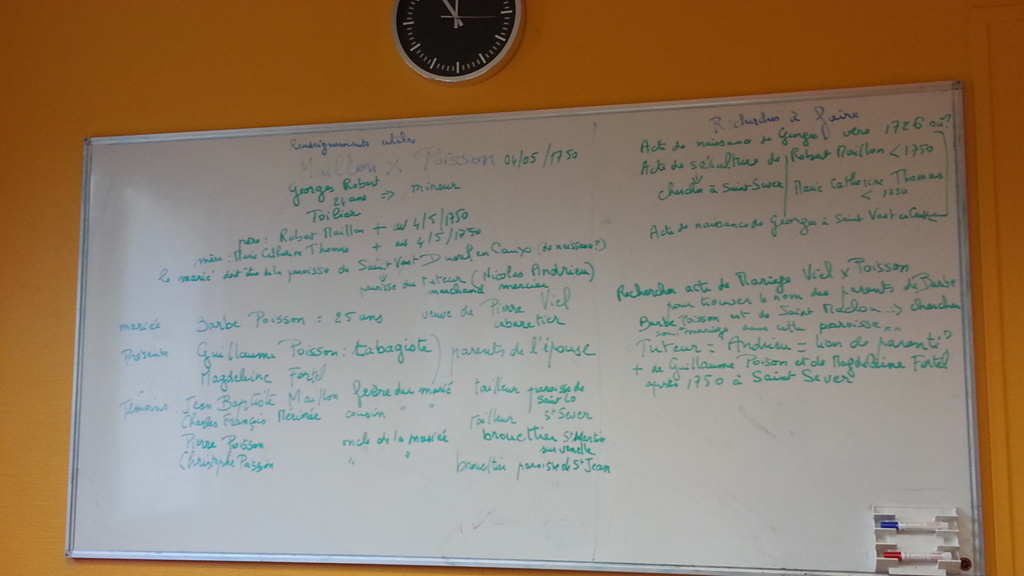 Renseignements utiles
Maillon x Poisson 04/05/1750
Georges Robert => mineur
24 ans
Toilier
père : Robert Maillon + au 4/5/1750
mère : Marie Catherine Thomas + au 4/5/1750
le marié doit être de la paroisse de Saint Vast D en Caux (de naissance ?)
paroisse du tuteur (Nicolas Andrieu)
marchand mercier
mariée Barbe Poisson : 25 ans veuve de Pierre Viel
cabaretier
Présents Guillaume Poisson : tabagiste) parents de l'épouse
Magdeleine Fortel
Témoins Jean Baptiste Maillon frère du marié tailleur paroisse de
saint Lo
Charles François cousin " " tailleur St Sever
Pierre Poisson oncle de la mariée brouettier St Martin
sur renelle
Christophe Poisson " " brouettier paroisse de St Jean
Recherches à faire
Acte de naissance de Georges vers 1726 où ?
Acte de sépulture de Robert Maillon < 1750
chercher à Saint Sever Marie Catherine Thomas
< 1750
Acte de naissance de Georges à Saint Vast en Caux
Rechercher acte de Mariage Viel x Poisson
pour trouver le nom des parents de Barbe
Barbe Poisson est de Saint Maclou => chercher
son mariage dans cette paroisse
Tuteur = Andrieu = lien de parenté ?
+ de Guillaume Poisson et de Magdeleine Fortel
après 1750 à Saint Sever